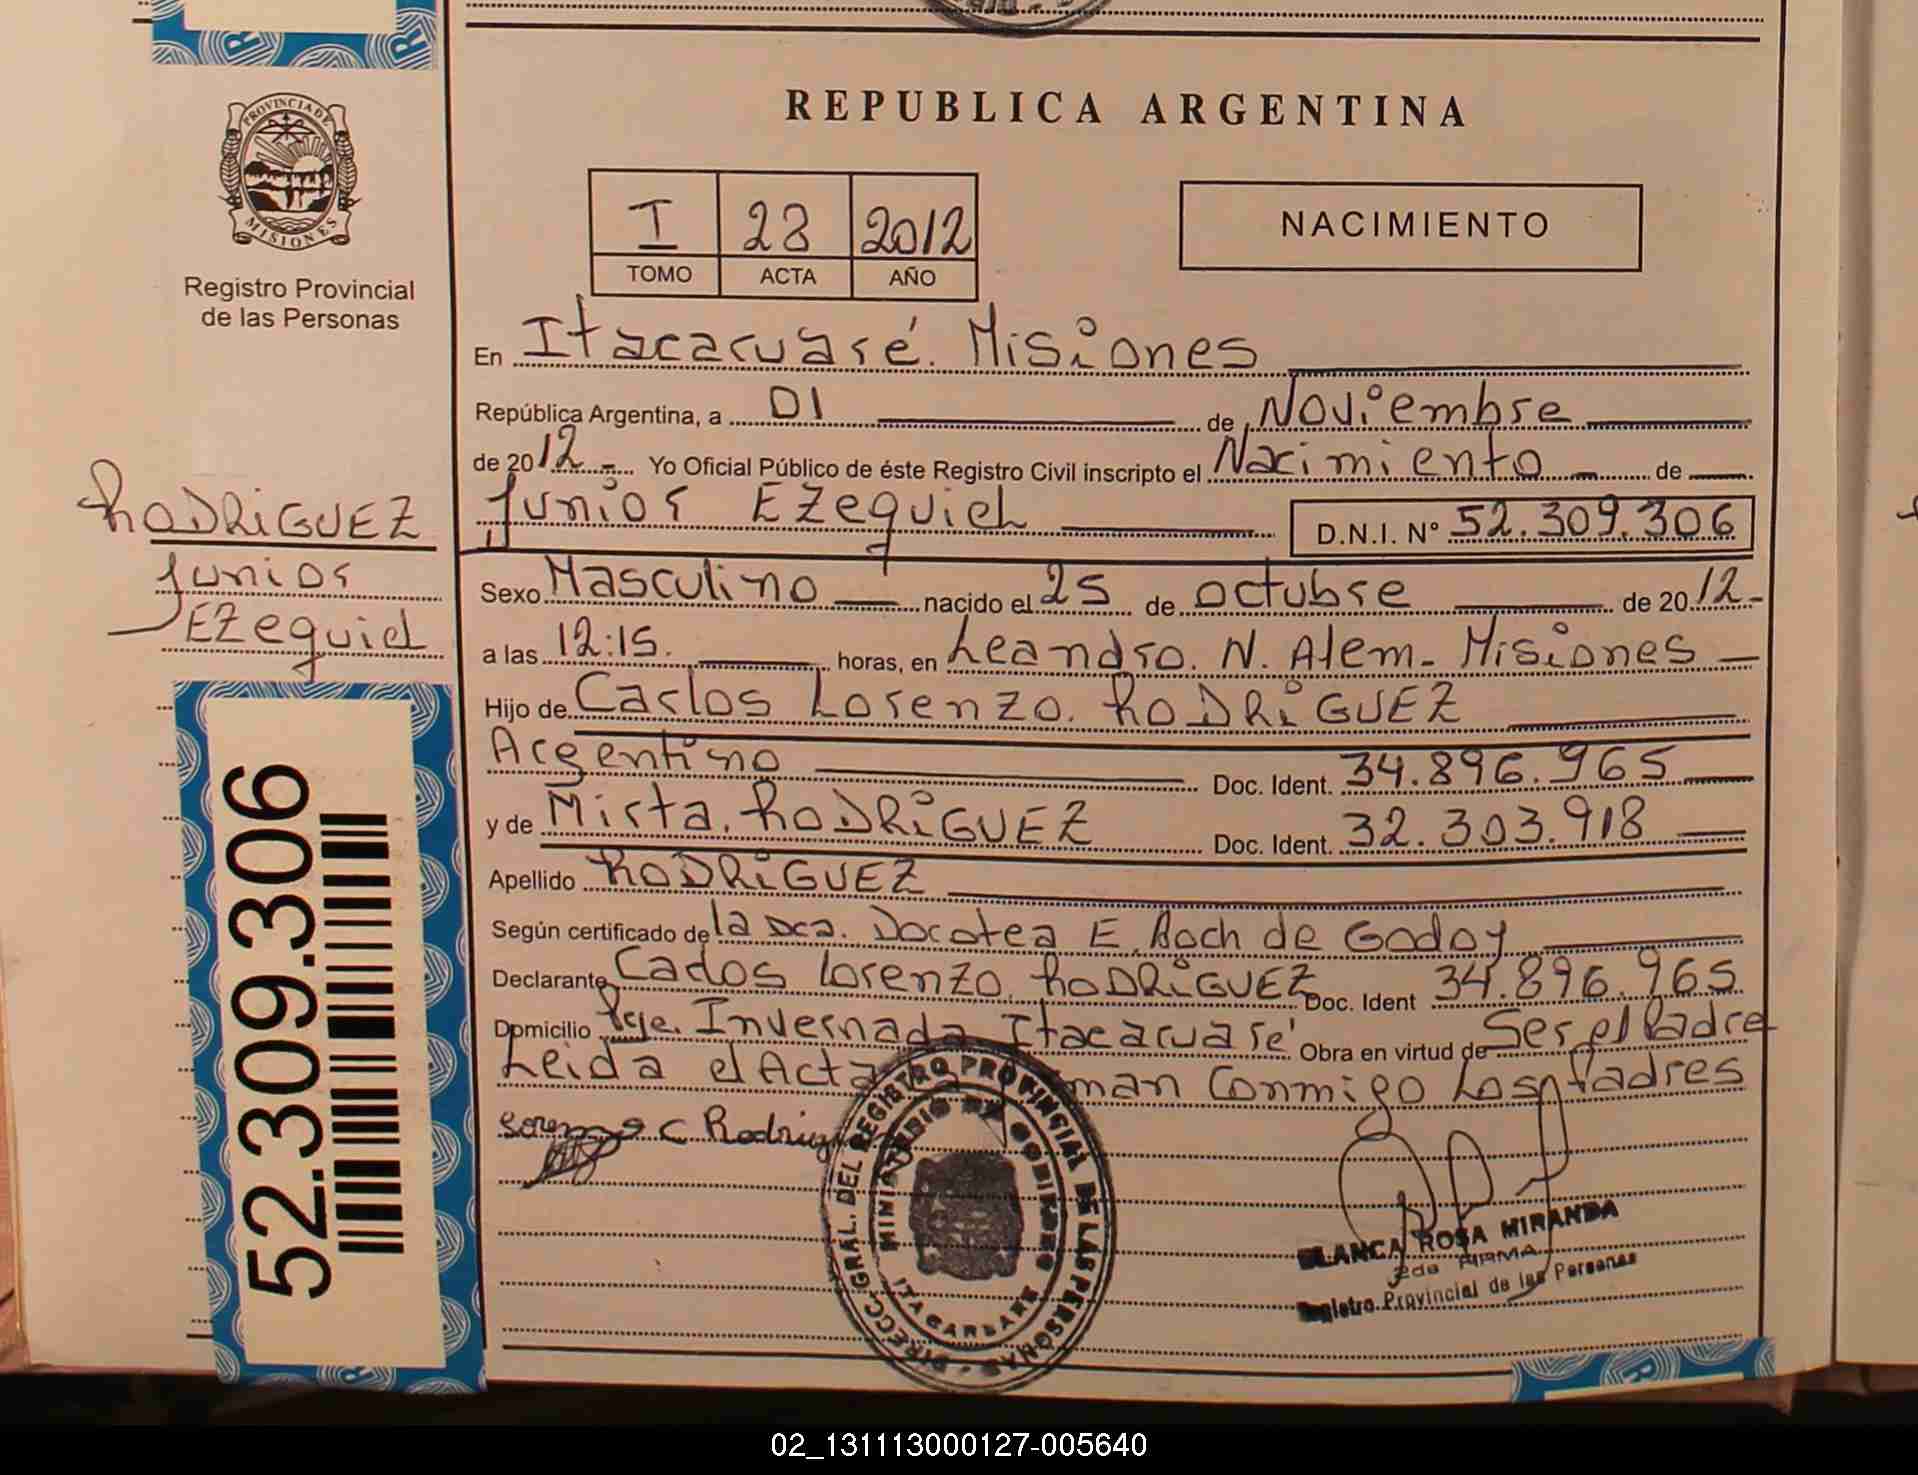 PROVINCIA DE
MISIONES
Registro Provincial
de las Personas
RODRIGUEZ
Junior
Ezequiel
52.309.306
REPUBLICA ARGENTINA
I 28 2012
TOMO ACTA AÑO
NACIMIENTO
En Itacaruaré. Misiones
República Argentina, a 01 de Noviembre
de 2012.- Yo Oficial Público de éste Registro Civil inscripto el Nacimiento de
Junior Ezequiel D.N.I. N° 52.309.306
Sexo Masculino nacido el 25 de octubre de 2012-
a las 12:15. horas, en Leandro. N. Alem- Misiones
Hijo de Carlos Lorenzo. RODRIGUEZ
Argentino Doc. Ident. 34.896.965
y de Mirta. RODRIGUEZ Doc. Ident. 32.303.918
Apellido RODRIGUEZ
Según certificado de la Dra. Dorotea E. Boch de Godoy
Declarante Carlos Lorenzo. RODRIGUEZ Doc. Ident 34.896.965
Domicilio Pje. Invernada Itacaruaré Obra en virtud de Ser el Padre
Leida el Acta man Conmigo Los Padres
C Rodrig
DIRECC. GRAL. DEL REGISTRO PROVINCIAL DE LAS PERSONAS
MINISTERIO DE GOBIERNO
ITACARUARE
BLANCA ROSA MIRANDA
2da FIRMA
Registro Provincial de las Personas
02_131113000127-005640